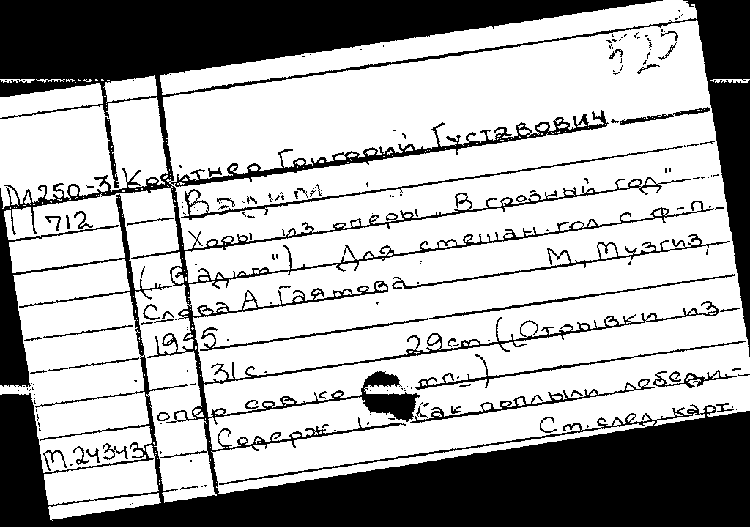 525
М250-3 Крейтнер Григорий Густавович.
П712 Вадим
Хоры из оперы „В грозный год"
(„Вадим"). Для смешан. гол с ф-п.
Слова А. Гаямова. М, Музгиз,
1955.
31 с. 29 см (Отрывки из
опер сов. ко мп.)
Содерж. 1. Как поплыли лебеди.-
М.24343п. См. след. карт.